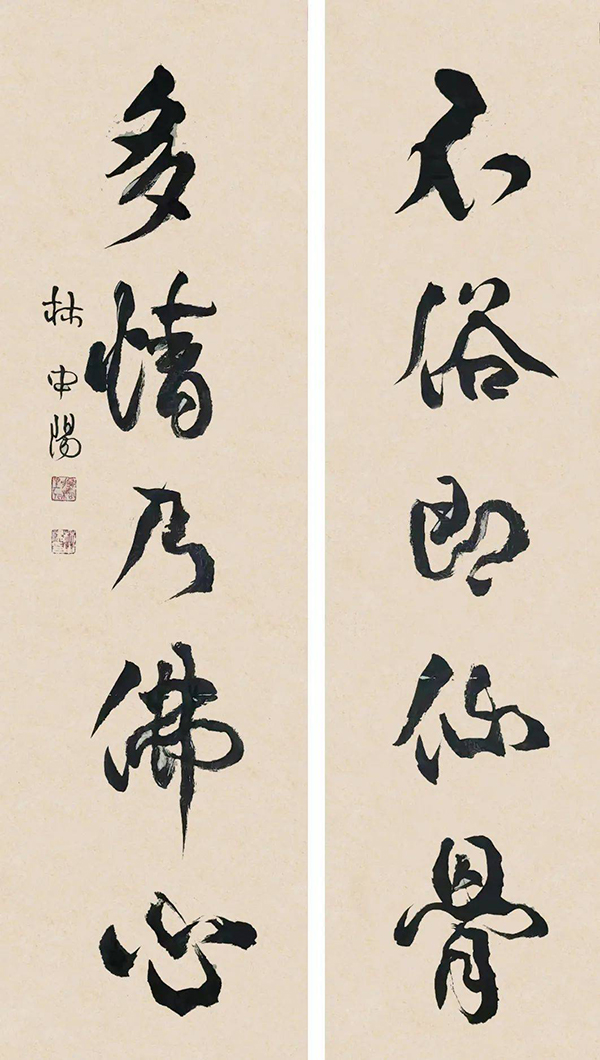 不俗即仙骨
多情乃佛心
林申陽